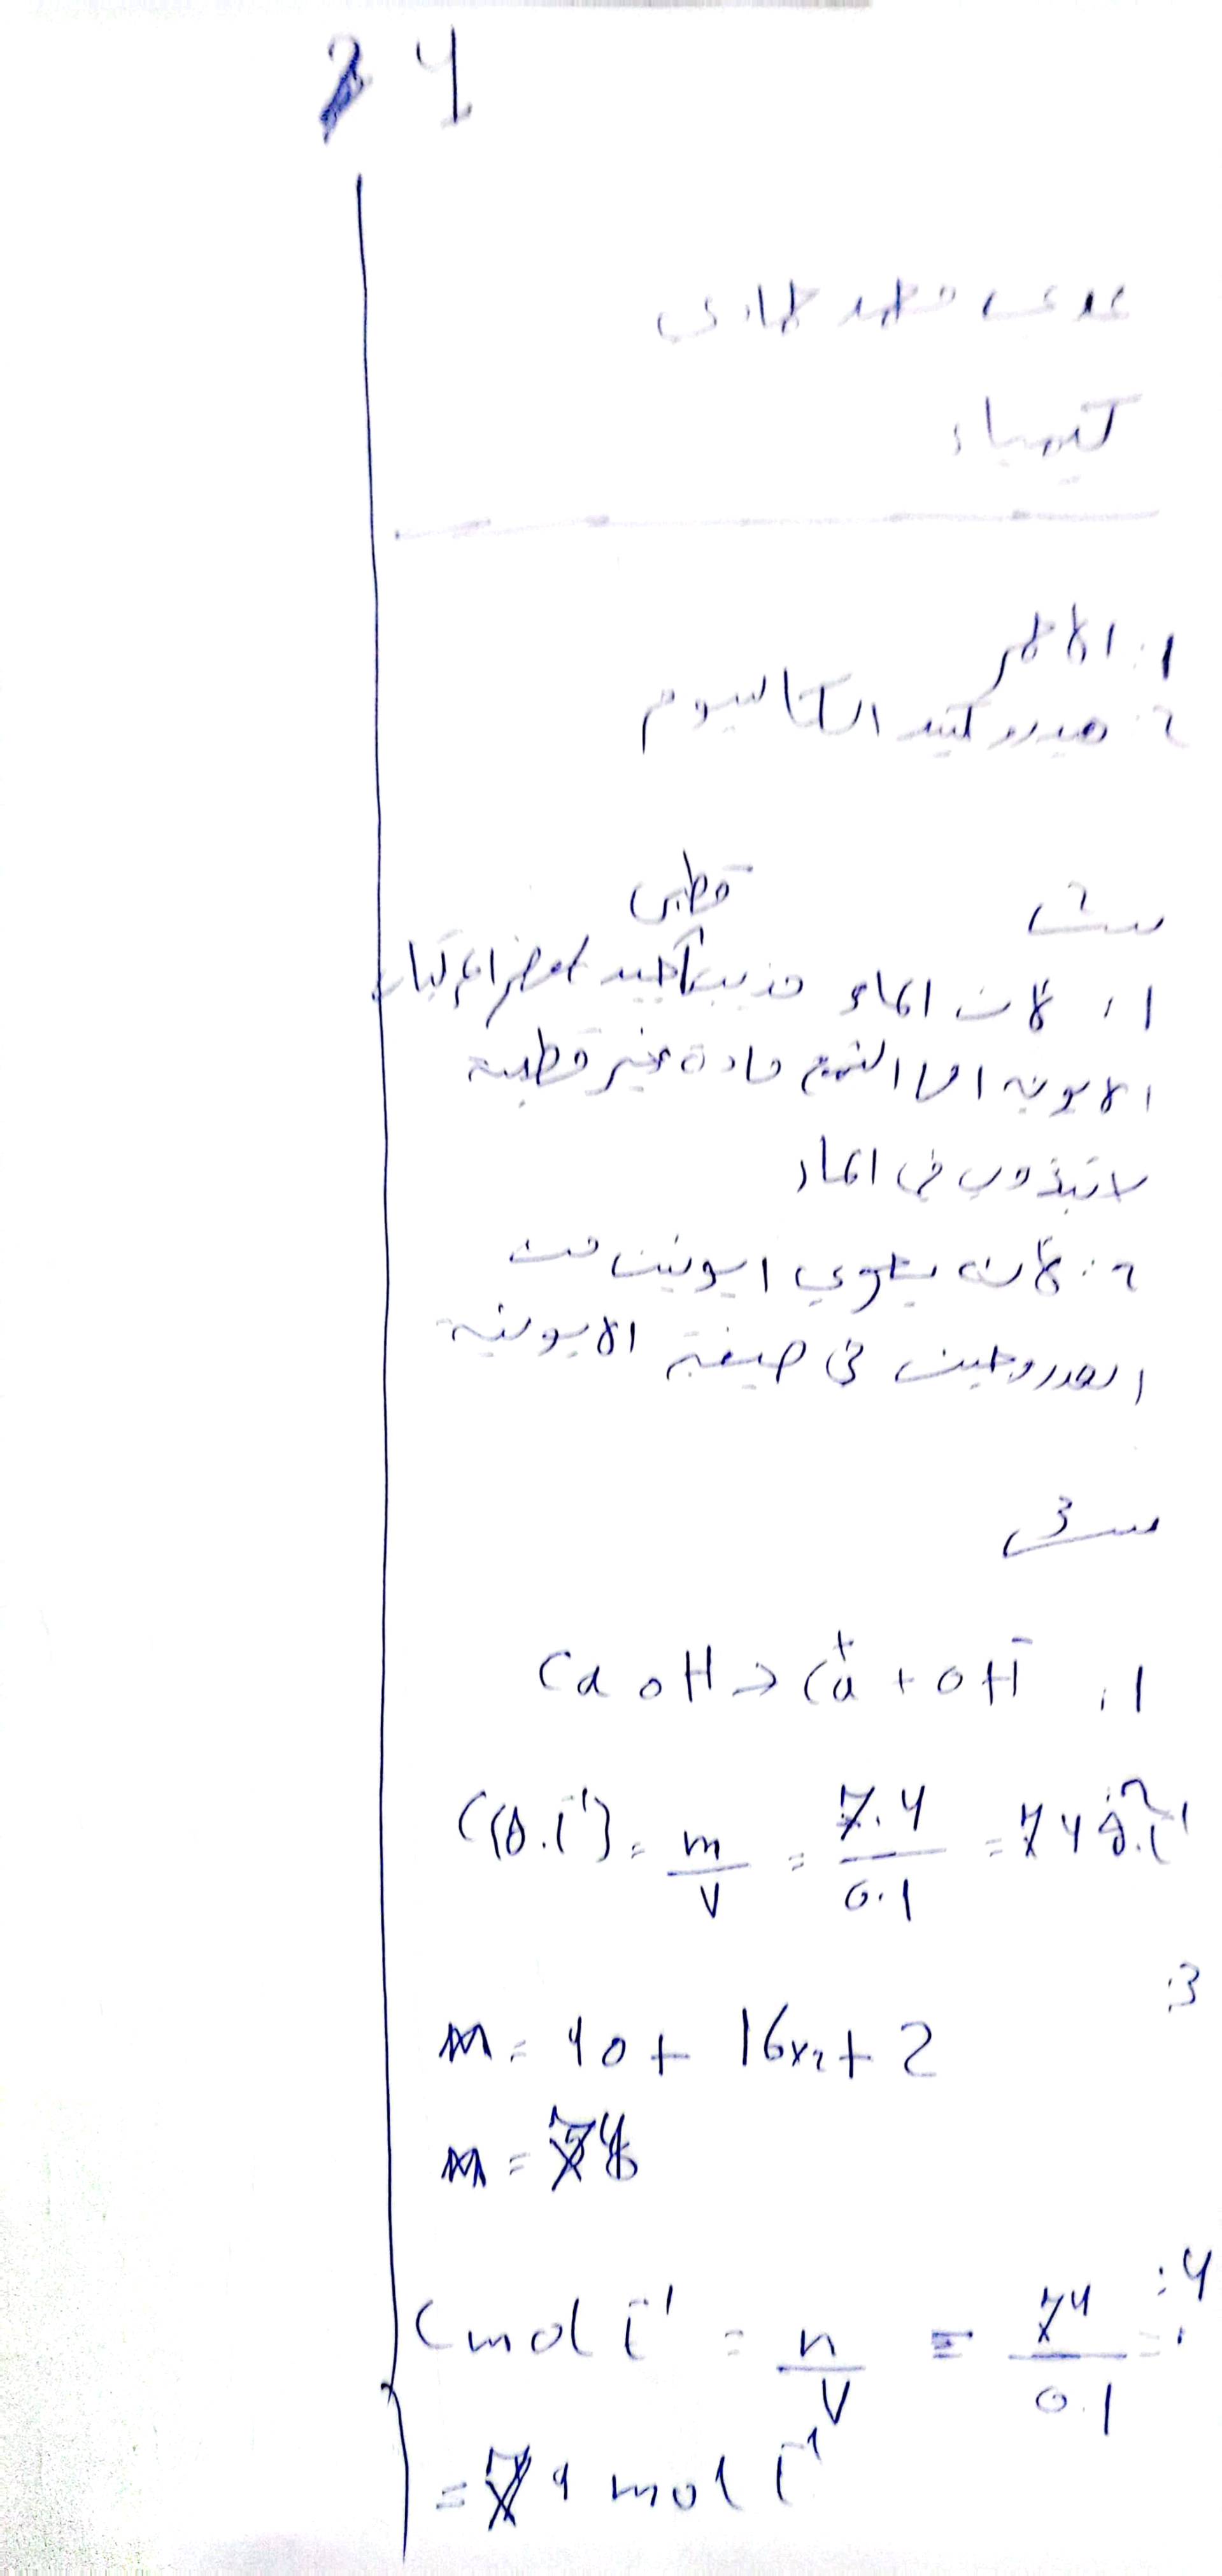 4
عدي فهد حمادي
كيمياء
1: الأحمر
2: هيدروكسيد الكالسيوم
س2
قطبي
1: لان الماء مذيب جيد لبعض المركبات
الايونية اما الشمع مادة غير قطبية
لا تذوب في الماء
2: لانه يحوي ايونين من
الهدروجين في صيغته الايونية
س3
1: CaOH → Ca⁺ + OH⁻
2: C(g.l⁻¹) = m/V = 7.4/0.1 = 74 g.l⁻¹
3:
M = 40 + 16x2 + 2
M = 74
4:
Cmol l⁻¹ = n/V = 74/0.1 =
= 74 mol l⁻¹